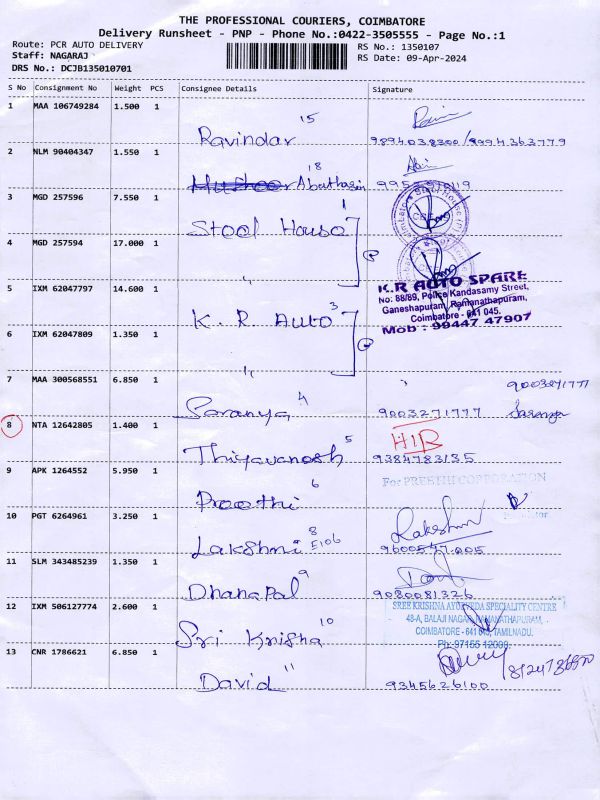 THE PROFESSIONAL COURIERS, COIMBATORE
Delivery Runsheet - PNP - Phone No.:0422-3505555 - Page No.:1
Route: PCR AUTO DELIVERY
RS No.: 1350107
Staff: NAGARAJ
RS Date: 09-Apr-2024
DRS No.: DCJB135010701
S No Consignment No Weight PCS Consignee Details Signature
1 MAA 106749284 1.500 1
15
Ravindar 9894038300/9994363779
2 NLM 90404347 1.550 1
18
3 MGD 257596 7.550 1
1
Steel House
4 MGD 257594 17.000 1
5 IXM 62047797 14.600 1
K.R AUTO SPARE
No: 88/89, Police Kandasamy Street,
Ganeshapuram, Ramanathapuram,
Coimbatore - 641 045.
Mob : 99447 47907
3
K. R. Auto
6 IXM 62047809 1.350 1
7 MAA 300568551 6.850 1
4
Saranya 9003271777
8 NTA 12642805 1.400 1
5
9384783135
9 APK 1264552 5.950 1
For PREETHI CORPORATION
6
Preethi
10 PGT 6264961 3.250 1
Lakshmi
8
Lakshmi E106
11 SLM 343485239 1.350 1
9
Dhanapal 9080081326
12 IXM 506127774 2.600 1
SREE KRISHNA AYURVEDA SPECIALITY CENTRE
48-A, BALAJI NAGAR, RAMANATHAPURAM,
COIMBATORE - 641 045, TAMILNADU.
Ph: 97156 12000
10
Sri Krisha
13 CNR 1786621 6.850 1
11
David 9345626100